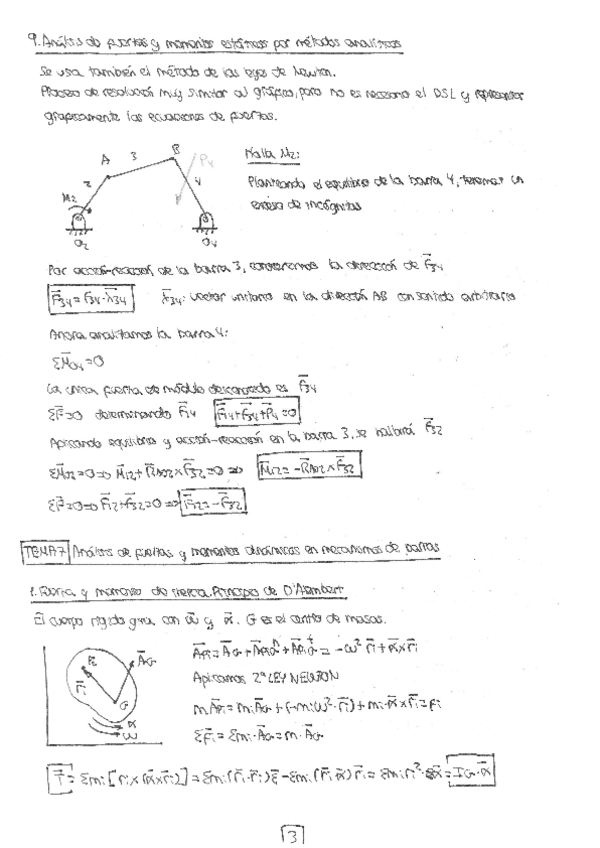 9. Análisis de fuerzas y momentos estáticos por métodos analíticos
Se usa también el método de las leyes de Newton.
Proceso de resolución muy similar al gráfico, pero no es necesario el DSL y representar
gráficamente las ecuaciones de fuerzas.
A 3 B P4
2 4
M2
O2 O4
Halla M2:
Planteando el equilibrio de la barra 4, tenemos un
exceso de incógnitas
Por acción-reacción de la barra 3, conoceremos la dirección de F⃗34
F⃗34 = F34·λ⃗34 λ⃗34: vector unitario en la dirección AB con sentido arbitrario
Ahora analizamos la barra 4:
ΣM⃗O4=0
La única fuerza de módulo desconocido es F⃗34
ΣF⃗=0 determinando F⃗14 F⃗14+F⃗34+P⃗4=0
Aplicando equilibrio y acción-reacción en la barra 3, se hallará F⃗32
ΣM⃗O2=0 => M⃗12+R⃗AO2×F⃗32=0 => M⃗12=-R⃗AO2×F⃗32
ΣF⃗=0 => F⃗12+F⃗32=0 => F⃗12=-F⃗32
TEMA 7 Análisis de fuerzas y momentos dinámicos en mecanismos de barras
1. Fuerza y momento de inercia. Principio de D'Alembert
El cuerpo rígido gira con ω⃗ y α⃗. G es el centro de masas.
Pi A⃗G
r⃗i G
α
ω
A⃗Pi=A⃗G+A⃗PiGⁿ+A⃗PiGᵗ = -ω² r⃗i+α⃗×r⃗i
Aplicamos 2ª LEY NEWTON
mi A⃗Pi=mi A⃗G+(-mi ω²·r⃗i)+mi·α⃗×r⃗i=Fi
ΣF⃗i=Σmi·A⃗G=m·A⃗G
T⃗=Σmi[r⃗i×(α⃗×r⃗i)]=Σmi(r⃗i·r⃗i)α⃗-Σmi(r⃗i·α⃗)r⃗i=Σmi ri²·α⃗=IG·α⃗
3